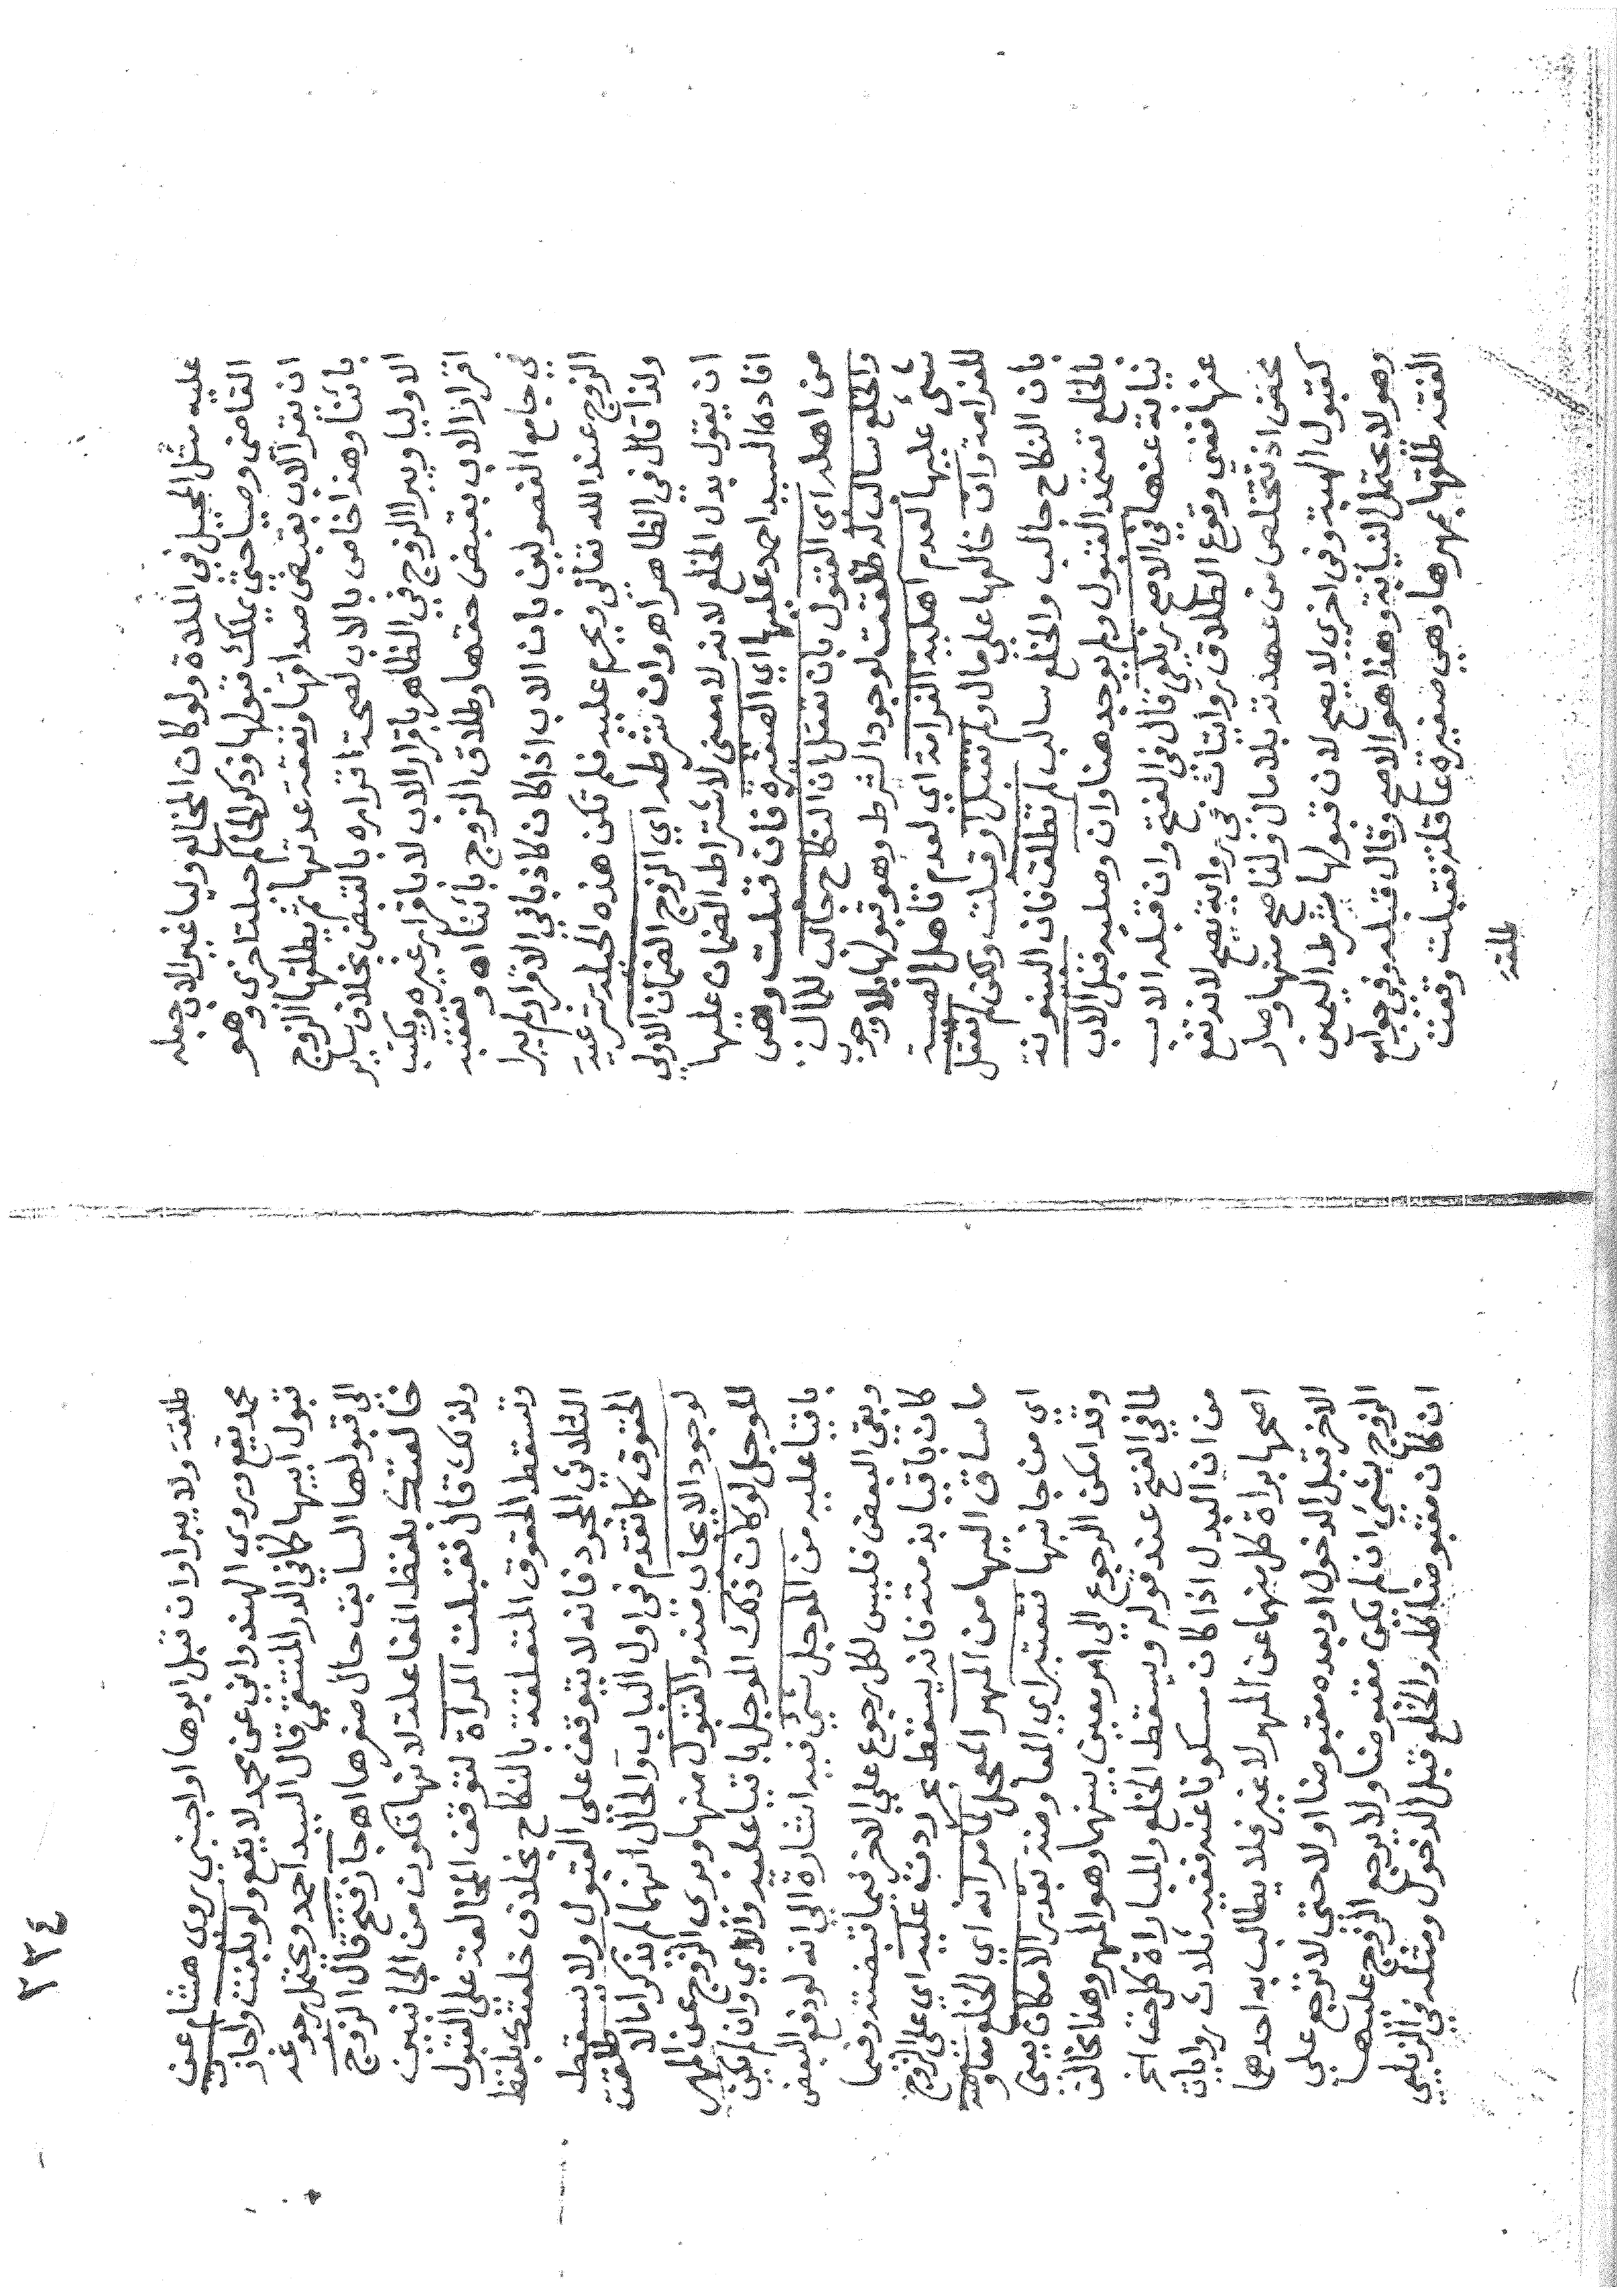 عليه مثل المحيل في الملاة ولو كان المخالع وليا غير الاب جعله
القاضي وصيا حتى يملك قبولها وذكر الحاكم حيلة اخرى وهو
ان يقر الاب بقبض صداقها ونفقة عدتها ثم يطلقها الزوج
بائنا وهذا خاص بالاب لصحة اقراره بالقبض بخلاف ساير
الاوليا ويبرا الزوج في الظاهر باقرار الاب لا باقرار غيره ويكتب
اقرار الاب بقبض حقها وطلاق الزوج بائنا اه وتعقبه
في جامع الفصولين بان الاب اذا كان كاذبا في الاقرار لم يبرا
الزوج عند الله تعالى ويحرم عليه فلم تكن هذه الحيلة شرعية
ولذا قال في الظاهر اه وان شرطه اي الزوج الضمان الاولى
ان يقول بدل الخلع لانه لا معنى لاشتراط الضمان عليها
افاده السيد احمد عليها اي الصغيرة فان قبلت وهي
من اهله اى القبول بان تعقل ان النكاح جالب للمال
والخلع سالب له طلقت لوجود الشرط وهو قبولها بلا وجوب
شئ عليها لعدم اهلية الغرامة اي لعدم تاهل الصبية
للغرامة وان خالعها على مال ولم تقبل او قبلت ولكن لم تعقل
بان النكاح جالب والخلع سالب لم تطلق فان البينونة
بالخلع تعتمد القبول ولم يوجد هنا وان وصلية قبل الاب
نيابة عنها في الاصح زيلعي قال في الفتح وان قبله الاب
عنها ففي وقوع الطلاق روايتان في رواية يصح لانه نفع
محض اذ تتخلص من عهدته بلا مال ولذا صح منها وصار
كقبول الهبة وفي اخرى لا يصح لان قبولها شرط اليمين
وهو لا يحتمل النيابة وهذا هو الاصح وقال قبله وفي جوامع
الفقه طلقها بمهرها وهي صغيرة عاقلة فقبلت وقعت
طلقة
طلقة ولا يبرا وان قبل ابوها او اجنبي روى هشام عن
محمد يقع وروى الهندواني عن محمد لا يقع ولو بلغت واجازت
قبول ابيها كافي الدر المنتقى قال السيد احمد ويحتمل رجوعه
الى قبولها السابق حال صغرها اه جاز فتح قال الزوج
خالعتك بلفظ المفاعلة لانها تكون من الجانبين
ولذلك قال فقبلت المراة لتوقف المخالعة على القبول
وتسقط الحقوق المتعلقة بالنكاح بخلاف خلعتك بلفظ
الثلاثي المجرد فانه لا يتوقف على القبول ولا يسقط
الحقوق كما تقدم في اول الباب والحال انهما لم يذكرا مالا طلقت
لوجود الايجاب منه والقبول منها وبرى الزوج عن المهر
المؤجل لو كان ذلك المؤجل باقيا عليه والا اي وان لم يكن
باقيا عليه من المؤجل شئ فيه اشارة الى انه لو دفع البعض
وبقي البعض فليس لكل رجوع على الاخر فيما قبضته وفيما
كان باقيا بذمته فانه يسقط بحر ردت عليه اي على الزوج
ما ساق اليها من المهر المعجل لما مر انه اي الخلع معاوضة
اي من جانبها فتعتبر اي المعاوضة بقدر الامكان يعني
وقد امكن الرجوع الى امر معين بينهما وهو المهر وهذا مخالف
لما في الفتح عند قوله ويسقط الخلع والمباراة كل حق الخ
من ان البدل اذا كان مسكوتا عنه ففيه ثلاث روايات
اصحها براة كل منهما عن المهر لا غير فلا يطالب به احدهما
الاخر قبل الدخول او بعده مقبوضا او لا حتى لا ترجع على
الزوج بشئ ان لم يكن مقبوضا ولا يرجع الزوج عليها
ان كان مقبوضا كله والخلع قبل الدخول ومثله في الزيلعي
٢٣٤